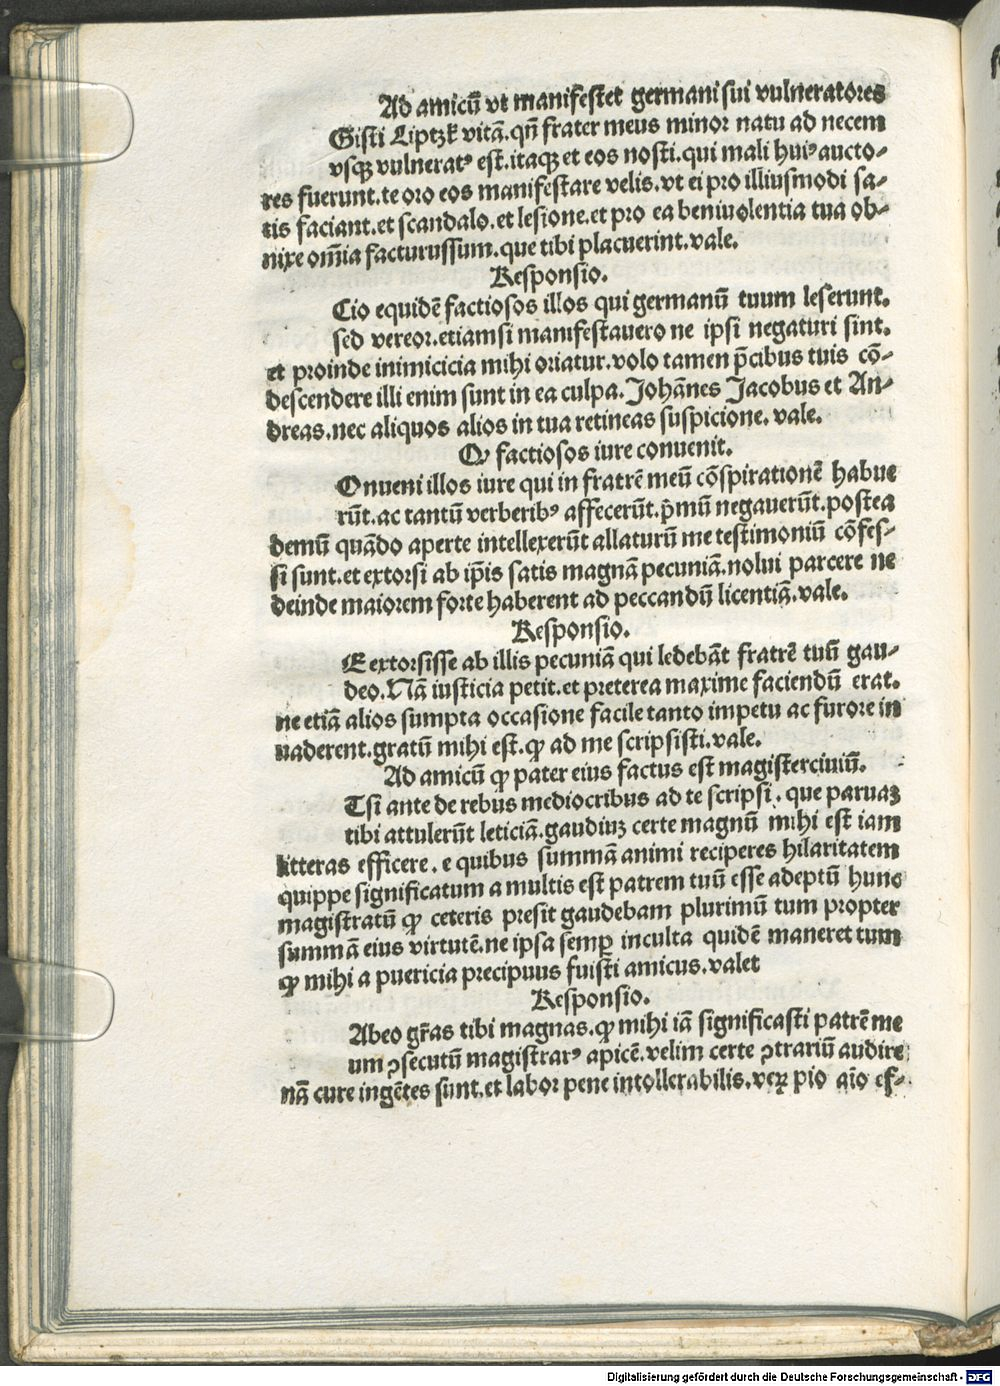 Ad amicū vt manifestet germani sui vulneratores
Gisti Liptzk vitā. qn̄ frater meus minor natu ad necem
vsqꝫ vulneratꝰ est. itaqꝫ et eos nosti. qui mali huiꝰ aucto⸗
res fuerunt. te oro eos manifestare velis. vt ei pro illiusmodi sa⸗
tis faciant. et scandalo. et lesione. et pro ea beniuolentia tua ob⸗
nixe om̄ia facturussum. que tibi placuerint. vale.
Responsio.
Cio equidē factiosos illos qui germanū tuum leserunt.
sed vereor. etiamsi manifestauero ne ipsi negaturi sint.
et proinde inimicicia mihi oriatur. volo tamen p̄cibus tuis cō⸗
descendere illi enim sunt in ea culpa. Johānes Jacobus et An⸗
dreas. nec aliquos alios in tua retineas suspicione. vale.
Qꝙ factiosos iure conuenit.
Onueni illos iure qui in fratrē meū cōspirationē habue
rūt. ac tantū verberibꝰ affecerūt. p̄mū negauerūt. postea
demū quādo aperte intellexerūt allaturū me testimoniū cōfes⸗
si sunt. et extorsi ab ip̄is satis magnā pecuniā. nolui parcere ne
deinde maiorem forte haberent ad peccandū licentiā. vale.
Responsio.
E extorsisse ab illis pecuniā qui ledebāt fratrē tuū gau⸗
deo. Nā iusticia petit. et preterea maxime faciendū erat.
ne etiā alios sumpta occasione facile tanto impetu ac furore in
uaderent. gratū mihi est. ꝙ ad me scripsisti. vale.
Ad amicū ꝙ pater eius factus est magisterciuiū.
Tsi ante de rebus mediocribus ad te scripsi. que paruaꝫ
tibi attulerūt leticiā. gaudiuꝫ certe magnū mihi est iam
litteras efficere. e quibus summā animi reciperes hilaritatem
quippe significatum a multis est patrem tuū esse adeptū hunc
magistratū ꝙ ceteris presit gaudebam plurimū tum propter
summā eius virtutē. ne ipsa semꝑ inculta quidē maneret tum
ꝙ mihi a puericia precipuus fuisti amicus. valet
Responsio.
Abeo gr̄as tibi magnas. ꝙ mihi iā significasti patrē me
um ꝯsecutū magistratꝰ apicē. velim certe ꝯtrariū audire
nā cure ingētes sunt. et labor pene intollerabilis. veꝝ pio aīo ef⸗
Digitalisierung gefördert durch die Deutsche Forschungsgemeinschaft - DFG